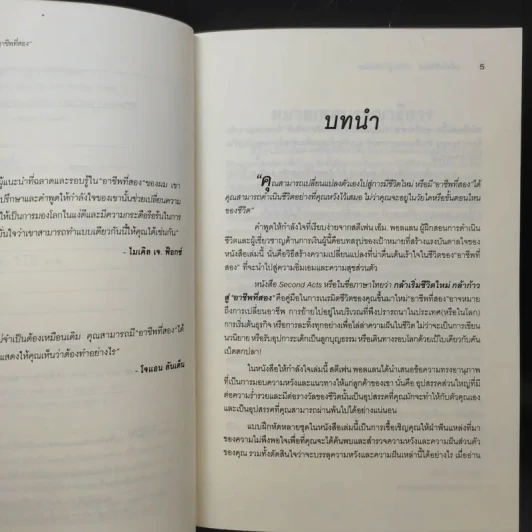 อาชีพที่สอง"
ผู้แนะนำที่ฉลาดและรอบรู้ใน"อาชีพที่สอง"ของผม เขา
ปรึกษาและคำพูดให้กำลังใจของเขานั้นช่วยเปลี่ยนความ
ให้เป็นการมองโลกในแง่ดีและมีความกระตือรือร้นในการ
มั่นใจว่าเขาสามารถทำแบบเดียวกันนี้ให้คุณได้เช่นกัน"
- ไมเคิล เจ. ฟ็อกซ์
จำเป็นต้องเหมือนเดิม คุณสามารถมี"อาชีพที่สอง"ได้
แสดงให้คุณเห็นว่าต้องทำอย่างไร"
- โจแอน ลันเด้น
5
บทนำ
"คุณสามารถเปลี่ยนแปลงตัวเองไปสู่การมีชีวิตใหม่ หรือมี"อาชีพที่สอง"ได้
คุณสามารถดำเนินชีวิตอย่างที่คุณหวังไว้เสมอ ไม่ว่าคุณจะอยู่ในวัยใดหรือขั้นตอนไหน
ของชีวิต"
คำพูดให้กำลังใจที่เรียบง่ายจากสตีเฟ่น เอ็ม. พอลแลน ผู้ฝึกสอนการดำเนิน
ชีวิตและผู้เชี่ยวชาญด้านการเงินผู้นี้คือบทสรุปของเป้าหมายที่สร้างแรงบันดาลใจของ
หนังสือเล่มนี้ นั่นคือวิธีสร้างความเปลี่ยนแปลงที่น่าตื่นเต้นเร้าใจในชีวิตของคุณ"อาชีพที่
สอง" ที่จะนำไปสู่ความอิ่มเอมและความสุขส่วนตัว
หนังสือ Second Acts หรือในชื่อภาษาไทยว่า กล้าเริ่มชีวิตใหม่ กล้าก้าว
สู่ "อาชีพที่สอง" คือคู่มือในการเนรมิตชีวิตของคุณขึ้นมาใหม่"อาชีพที่สอง"อาจหมาย
ถึงการเปลี่ยนอาชีพ การย้ายไปอยู่ในบริเวณที่พึงปรารถนาในประเทศ(หรือในโลก)
การเริ่มต้นธุรกิจ หรือการละทิ้งทุกอย่างเพื่อไล่ล่าความฝันในชีวิต ไม่ว่าจะเป็นการเขียน
นวนิยาย หรือรับอุปการะเด็กเป็นลูกบุญธรรม หรือเดินทางรอบโลกด้วยเป้ใบเดียวกับคัน
เบ็ดตกปลา!
ในหนังสือให้กำลังใจเล่มนี้ สตีเฟ่น พอลแลนได้นำเสนอข้อความทรงอานุภาพ
ที่เป็นการมอบความหวังและแนวทางให้แก่ลูกค้าของเขา นั่นคือ อุปสรรคส่วนใหญ่ที่มี
ต่อความร่ำรวยและมีต่อรางวัลของชีวิตนั้นเป็นอุปสรรคที่คุณมักจะทำให้กับตัวคุณเอง
และเป็นอุปสรรคที่คุณสามารถผ่านพ้นไปได้อย่างแน่นอน
แบบฝึกหัดหลายชุดในหนังสือเล่มนี้เป็นการเชื้อเชิญคุณให้ฝ่าฟันแหล่งที่มา
ของความไม่พึงพอใจเพื่อที่คุณจะได้ค้นพบและสำรวจความหวังและความฝันส่วนตัว
ของคุณ รวมทั้งตัดสินใจว่าจะบรรลุความหวังและความฝันเหล่านี้ได้อย่างไร เมื่ออ่าน